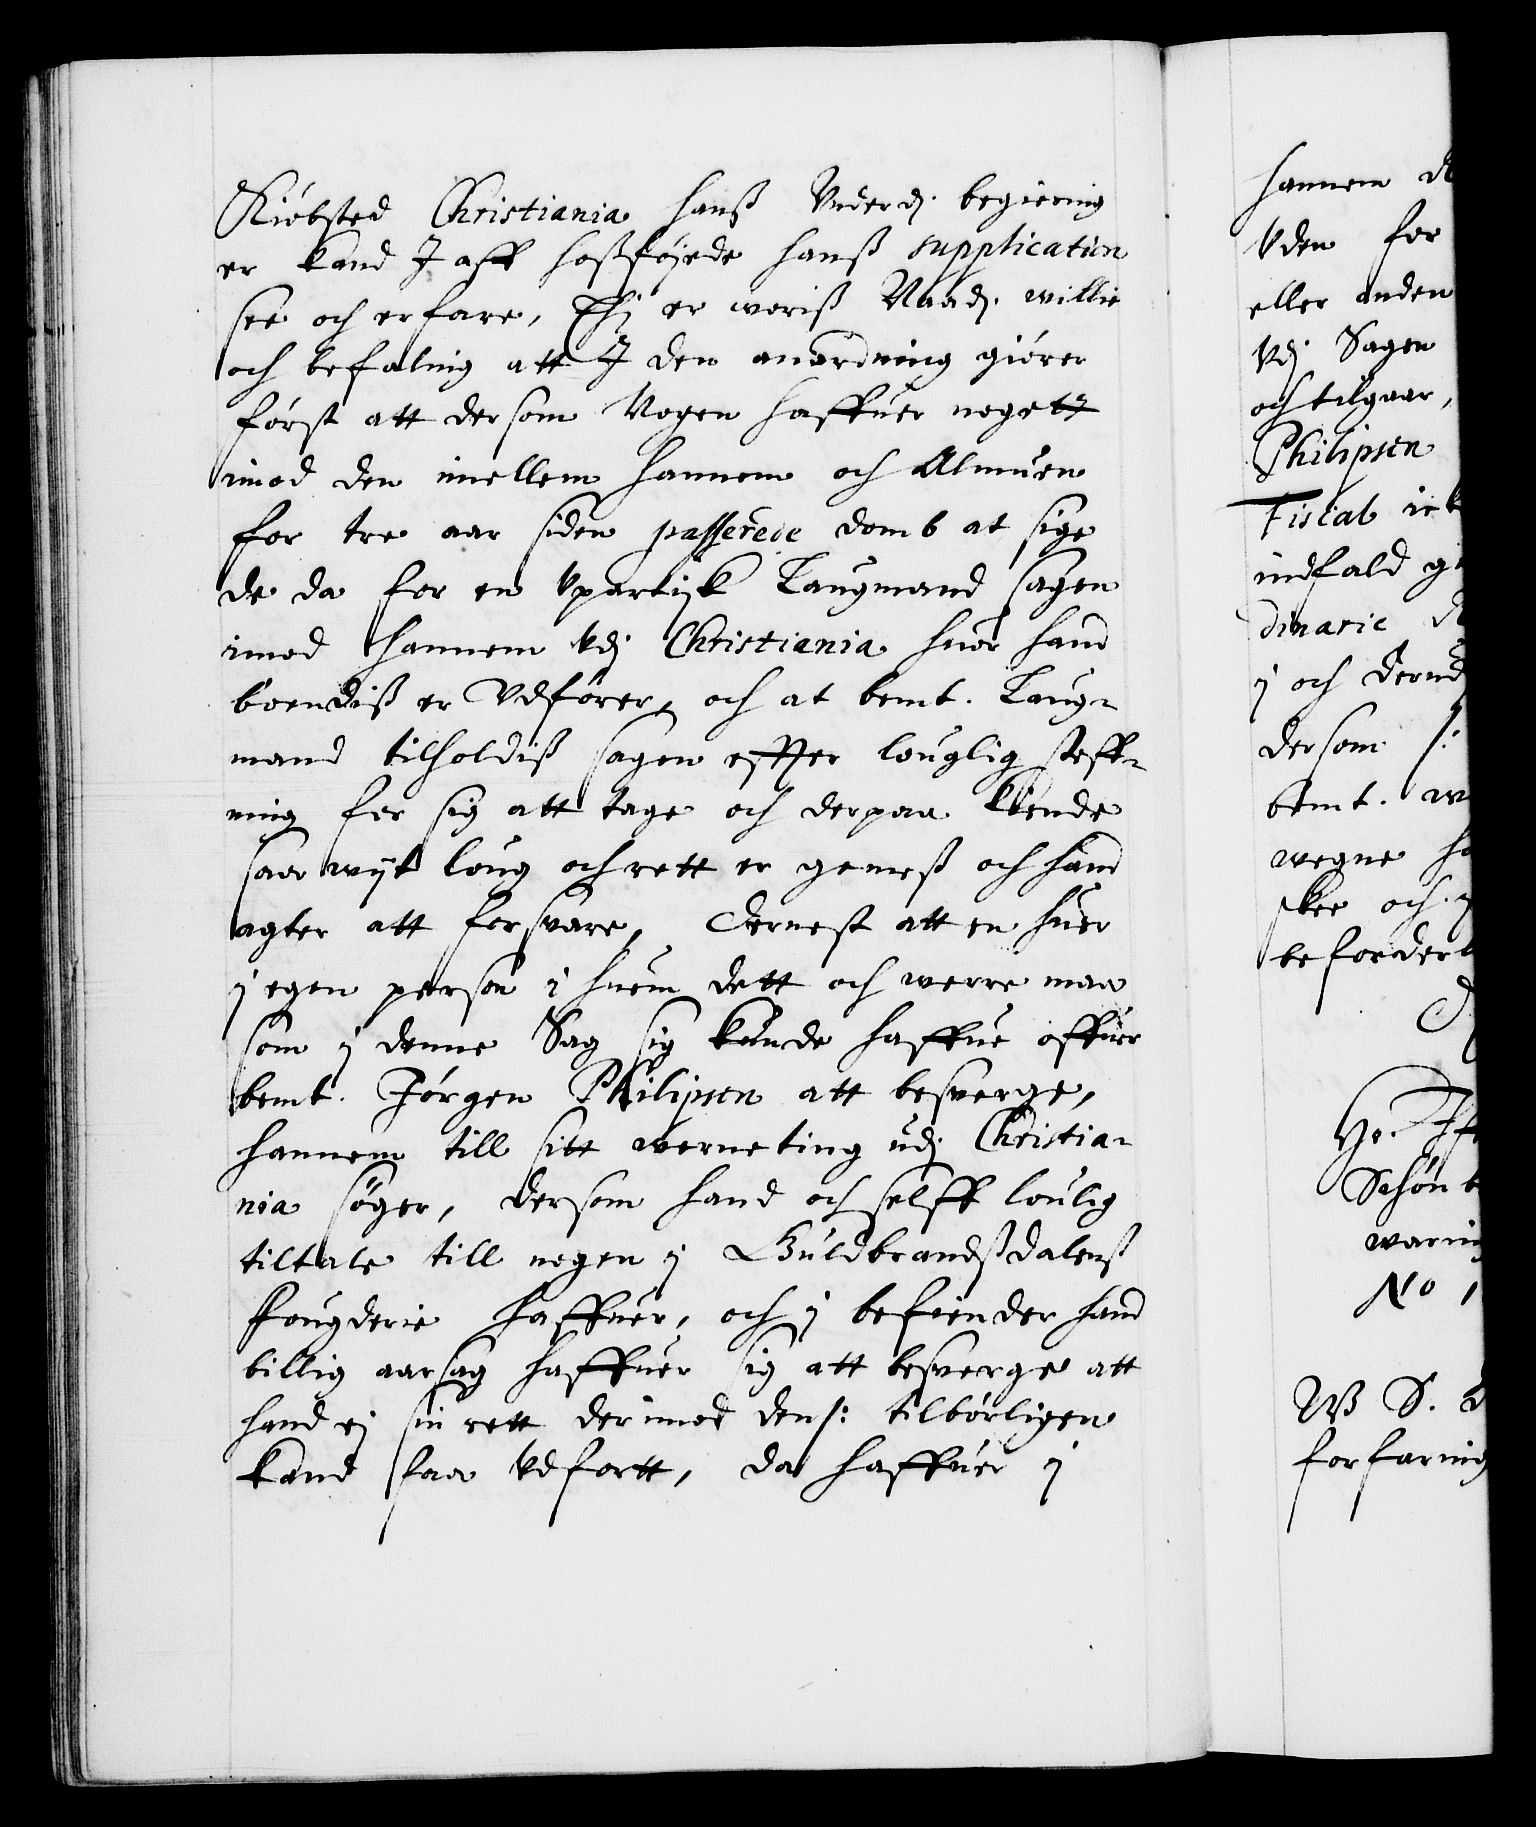 Kiøbsted Christiania hanß Underd: begiering
er kand I aff hoßføyede hanß supplication
see och erfare, Thj er woriß Naad: willie
och befaling att I den anordning giører
først att dersom Nogen haffuer nogett
imod den imellem hannem och Almuen
for tre aar siden passerede domb at sige
de da for en Upartisk Laugmand sagen
imod hannem Udj Christiania huor hand
boendiß er Udfører, och at bemt. Laug-
mand tilholdiß sagen effter louglig steff-
ning for sig att tage och derpaa kiende
saa wijt loug och rett er gemeß och hand
agter att forsvare, dernest att en huer
j egen person i huem dett och werre maa
som j denne Sag sig kunde haffue offuer
bemt. Jørgen Philipsen att besverge,
hannem till sitt werneting udj Christia-
nia søger, dersom hand och selff loulig
tiltale till nogen j Guldbrandßdalenß
fougderie haffuer, och j befiender hand
billig aarsag haffuer sig att besverge att
hand ej sin rett derimod den /: tilbørligen
kand faa Udfortt, da haffuer j
hannem
Uden for
eller anden
Udj Sagen
och tilgaar,
Philipsen
Fiscal
indfald
dinarie
j och
dersom /:
bemt.
wegne
skee och
Hr.
No
W S.
forfaring